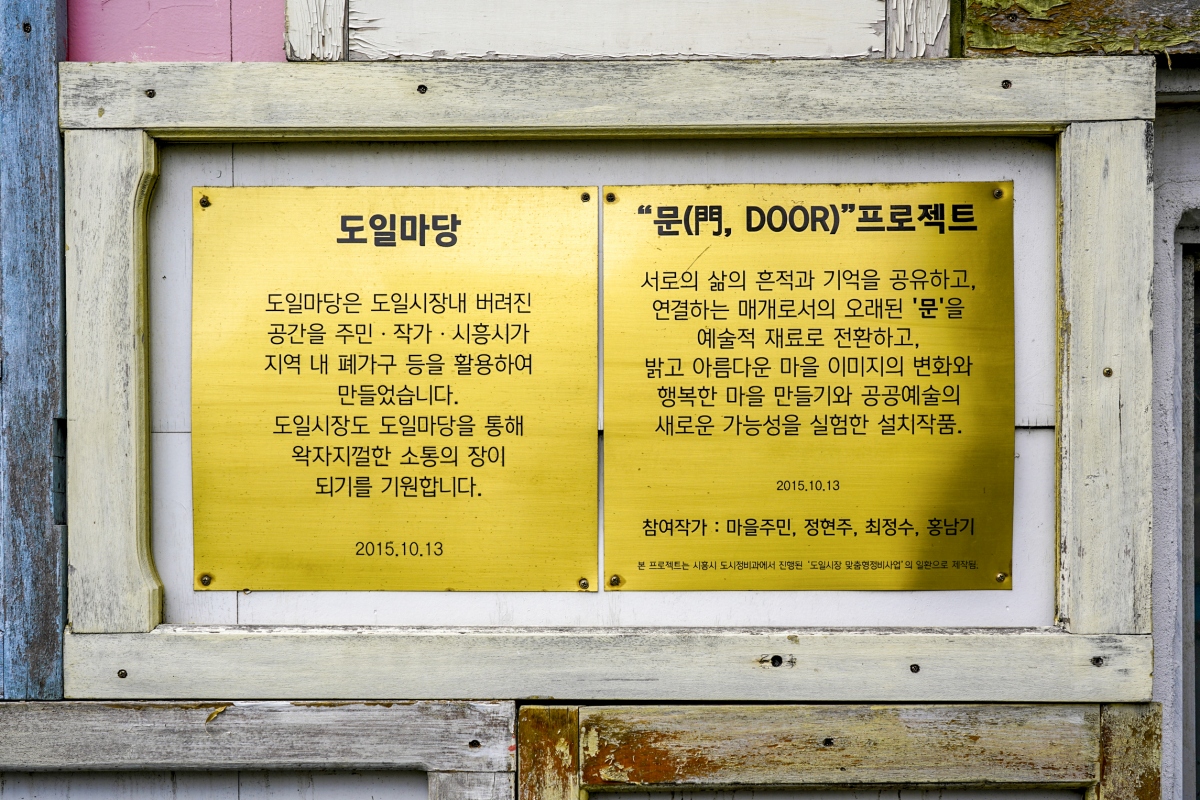 도일마당
도일마당은 도일시장내 버려진
공간을 주민 · 작가 · 시흥시가
지역 내 폐가구 등을 활용하여
만들었습니다.
도일시장도 도일마당을 통해
왁자지껄한 소통의 장이
되기를 기원합니다.
2015.10.13
“문(門, DOOR)”프로젝트
서로의 삶의 흔적과 기억을 공유하고,
연결하는 매개로서의 오래된 '문'을
예술적 재료로 전환하고,
밝고 아름다운 마을 이미지의 변화와
행복한 마을 만들기와 공공예술의
새로운 가능성을 실험한 설치작품.
2015.10.13
참여작가 : 마을주민, 정현주, 최정수, 홍남기
본 프로젝트는 시흥시 도시정비과에서 진행된 '도일시장 맞춤형정비사업'의 일환으로 제작됨.